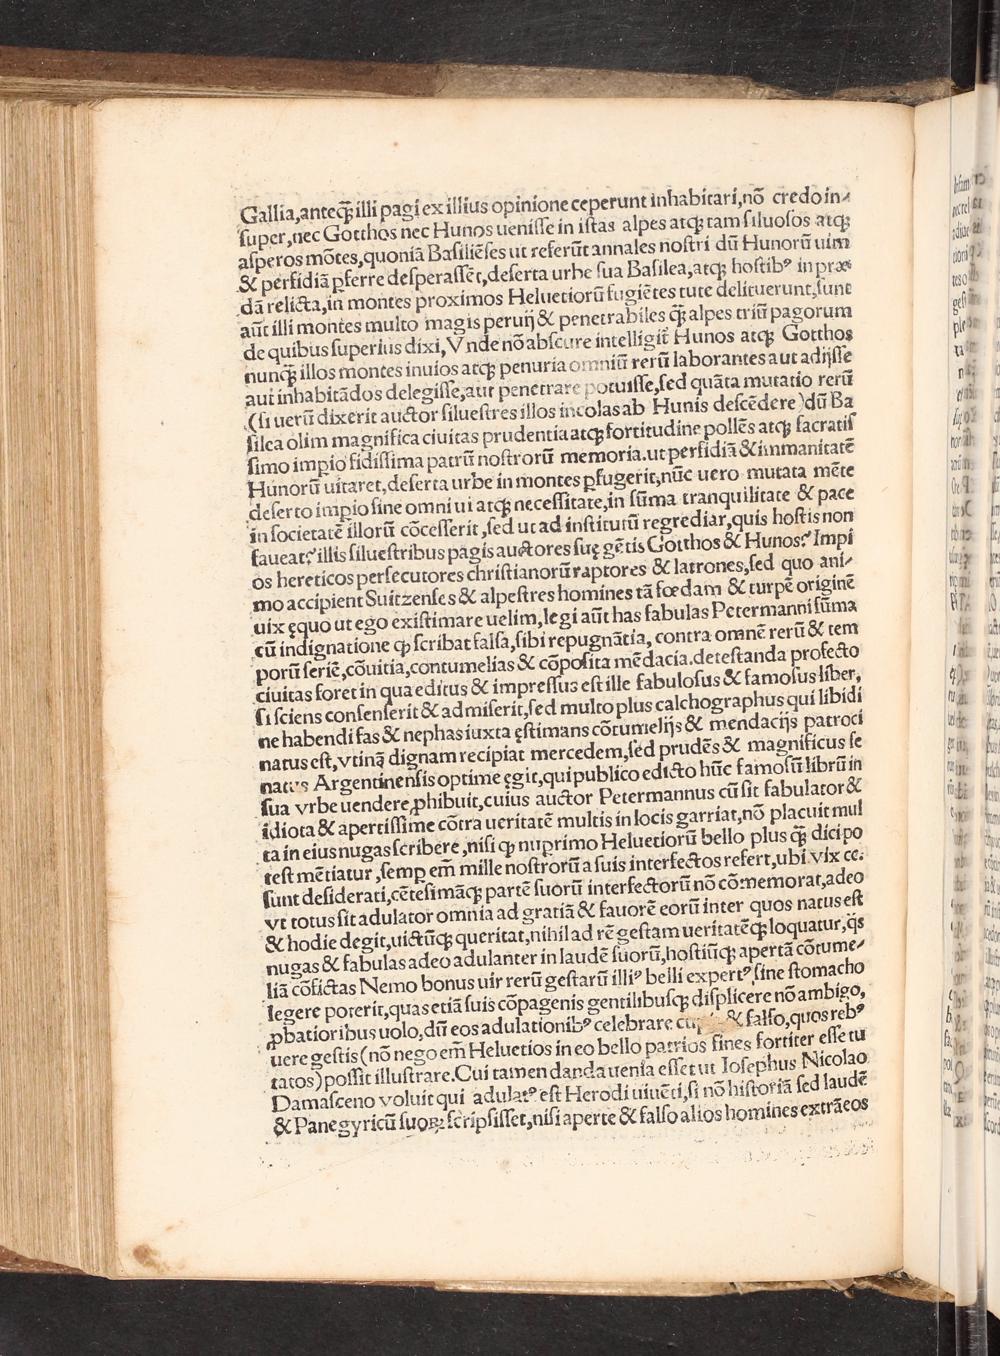 Gallia,anteq̄ʒ illi pagi ex illius opinione ceperunt inhabitari,nō credo in-
ſuper,nec Gotthos nec Hunos ueniſſe in iſtas alpes atqʒ tam ſiluoſos atqʒ
aſperos mōtes,quoniā Baſiliēſes ut referūt annales noſtri dū Hunorū uim
& perfidiā ꝑferre deſperaſſēt,deſerta urbe ſua Baſilea,atqʒ hoſtibꝰ in præ-
dā relicta,in montes proximos Heluetiorū fugiētes tute delituerunt,ſunt
aūt illi montes multo magis peruij & penetrabiles q̄ʒ alpes triū pagorum
de quibus ſuperius dixi,Vnde nō abſcure intelligit̄ Hunos atqʒ Gotthos
nunq̄ʒ illos montes inuios atqʒ penuria omniū rerū laborantes aut adijſſe
aut inhabitādos delegiſſe,aut penetrare potuiſſe,ſed quāta mutatio rerū
(ſi uerū dixerit auctor ſilueſtres illos incolas ab Hunis deſcēdere)dū Ba
ſilea olim magnifica ciuitas prudentia atqʒ fortitudine pollēs atqʒ ſacratiſ
ſimo impio fidiſſima patrū noſtrorū memoria.ut perfidiā & immanitatē
Hunorū uitaret,deſerta urbe in montes ꝑfugerit,nūc uero mutata mēte
deſerto impio ſine omni ui atqʒ neceſſitate,in ſūma tranquilitate & pace
in ſocietatē illorū cōceſſerit,ſed ut ad inſtitutū regrediar,quis hoſtis non
faueat? illis ſilueſtribus pagis auctores ſuę gētis Gotthos & Hunos? Impi
os hereticos perſecutores chriſtianorū raptores & latrones,ſed quo ani-
mo accipient Suitzenſes & alpeſtres homines tā fœdam & turpē originē
uix ęquo ut ego exiſtimare uelim,legi aūt has fabulas Petermanni ſūma
cū indignatione ꝙ ſcribat falſa,ſibi repugnātia, contra omnē rerū & tem
porū ſeriē,cōuitia,contumelias & cōpoſita mēdacia.deteſtanda profecto
ciuitas foret in qua editus & impreſſus eſt ille fabuloſus & famoſus liber,
ſi ſciens conſenſerit & admiſerit,ſed multo plus calchographus qui libidi
ne habendi fas & nephas iuxta ęſtimans cōtumelijs & mendacijs patroci
natus eſt,vtinā dignam recipiat mercedem,ſed prudēs & magnificus ſe
natus Argentinenſis optime ęgit,qui publico edicto hūc famoſū librū in
ſua vrbe uendere ꝓhibuit,cuius auctor Petermannus cū ſit fabulator &
idiota & apertiſſime cōtra ueritatē multis in locis garriat,nō placuit mul
ta in eius nugas ſcribere,niſi ꝙ nuprimo Heluetiorū bello plus q̄ʒ dici po
teſt mētiatur,ſemp em̄ mille noſtrorū a ſuis interfectos refert,ubi vix cē.
ſunt deſiderati,cēteſimāqʒ partē ſuorū interfectorū nō cōmemorat,adeo
vt totus ſit adulator omnia ad gratiā & fauorē eorū inter quos natus eſt
& hodie degit,uictūqʒ queritat,nihil ad rē geſtam ueritatēqʒ loquatur,q̄s
nugas & fabulas adeo adulanter in laudē ſuorū,hoſtiūqʒ apertā cōtume-
liā cōfictas Nemo bonus uir rerū geſtarū illiꝰ belli expertꝰ,ſine ſtomacho
legere poterit,quas etiā ſuis cōpagenis gentilibuſqʒ diſplicere nō ambigo,
ꝓbatioribus uolo,dū eos adulationibꝰ celebrare & falſo,quos rebꝰ
uere geſtis (nō nego em̄ Heluetios in eo bello patrios fines fortiter eſſe tu
tatos)poſſit illuſtrare.Cui tamen danda uenia eſſet ut Ioſephus Nicolao
Damaſceno voluit qui adulatꝰ eſt Herodi uiuēti,ſi nō hiſtoriā ſed laudē
& Panegyricū ſuoꝝ ſcripſiſſet,niſi aperte & falſo alios homines extrāeos